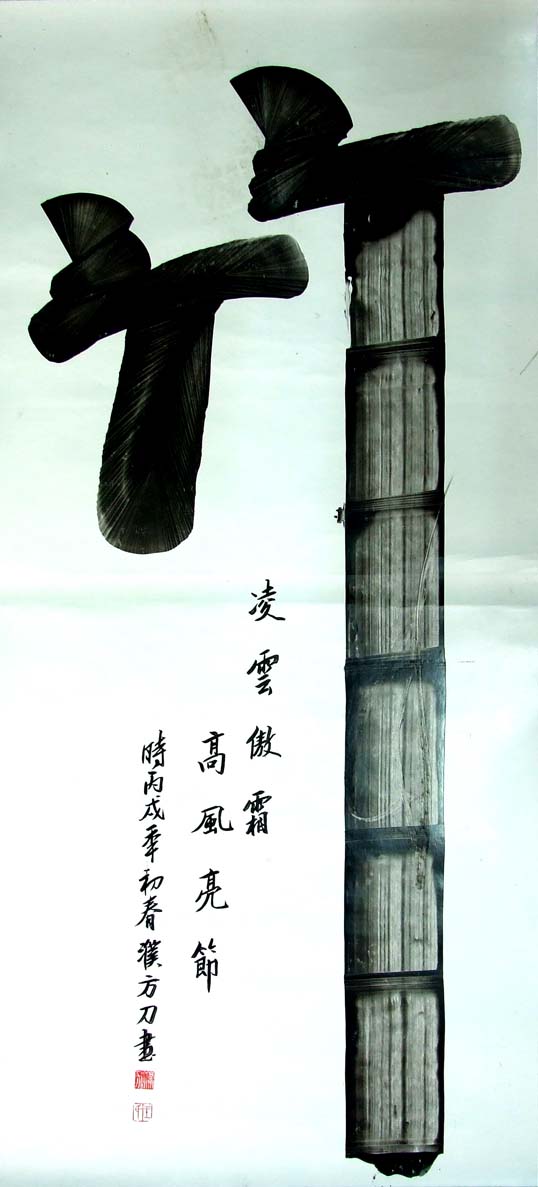 竹
凌雲傲霜
高風亮節
時丙戌年初春濮方刀畫